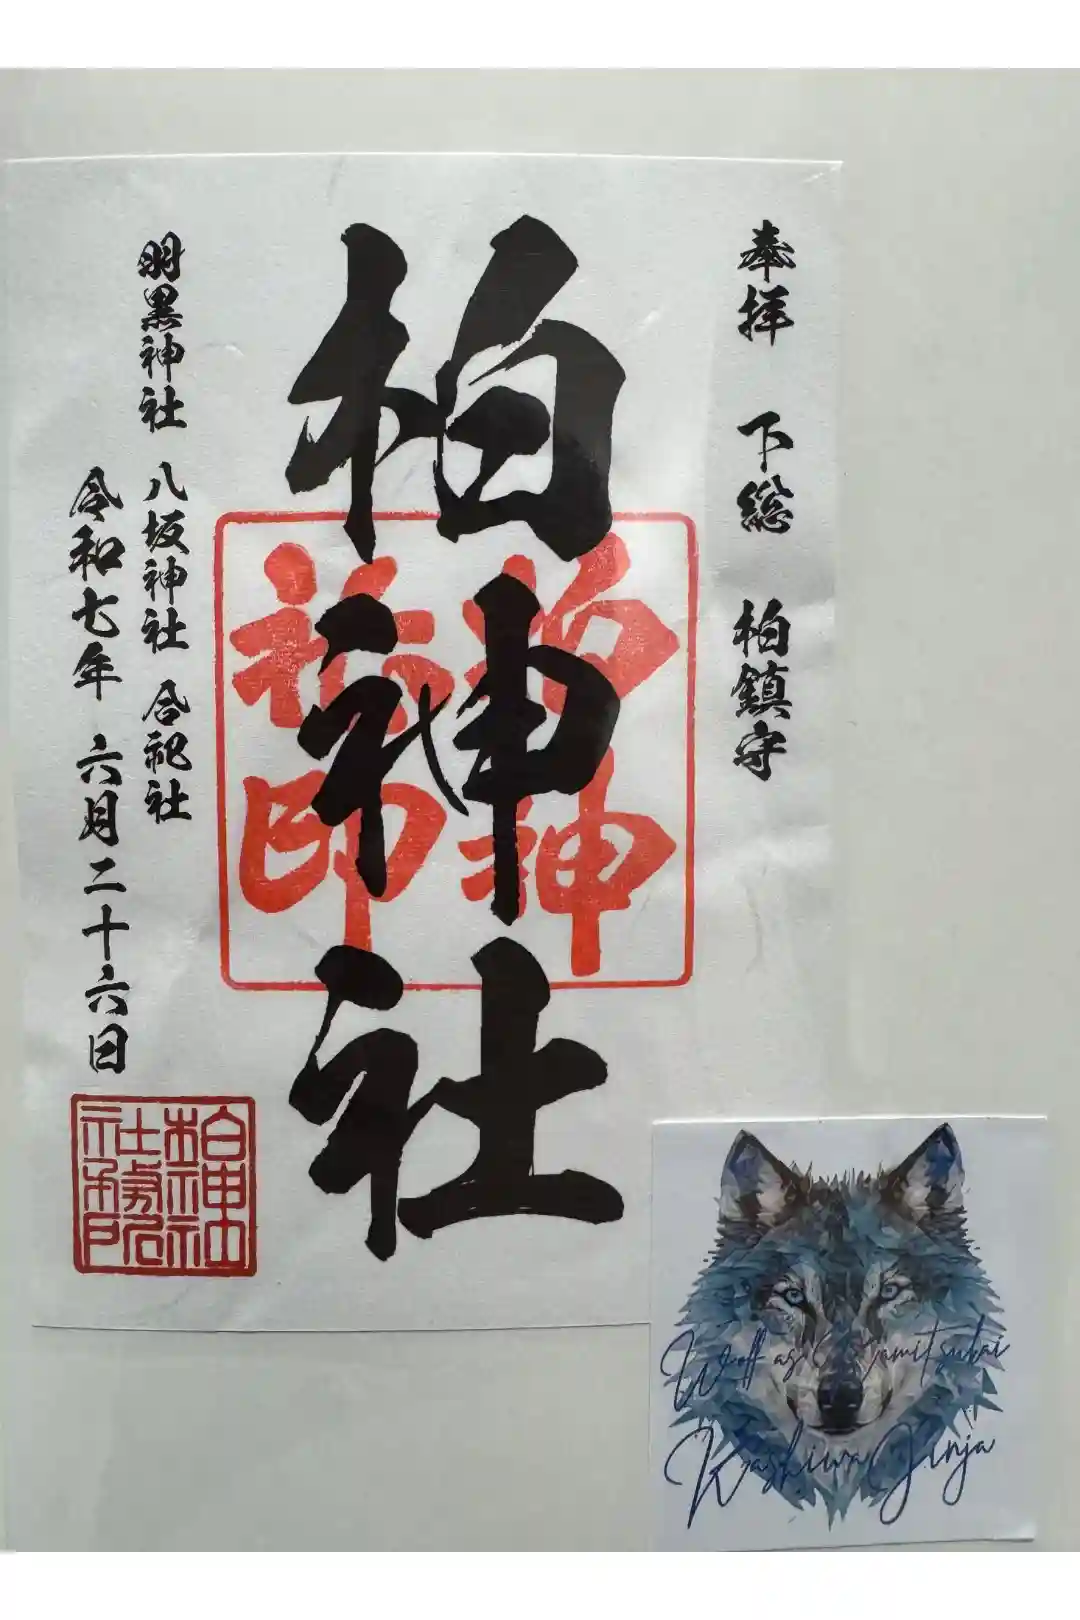 奉拝 下総 柏鎮守
柏神社
羽黒神社 八坂神社 合祀社
令和七年 六月二十六日
柏神社
社務所
Wolf as Kamitsukai
Kashiwa Jinja